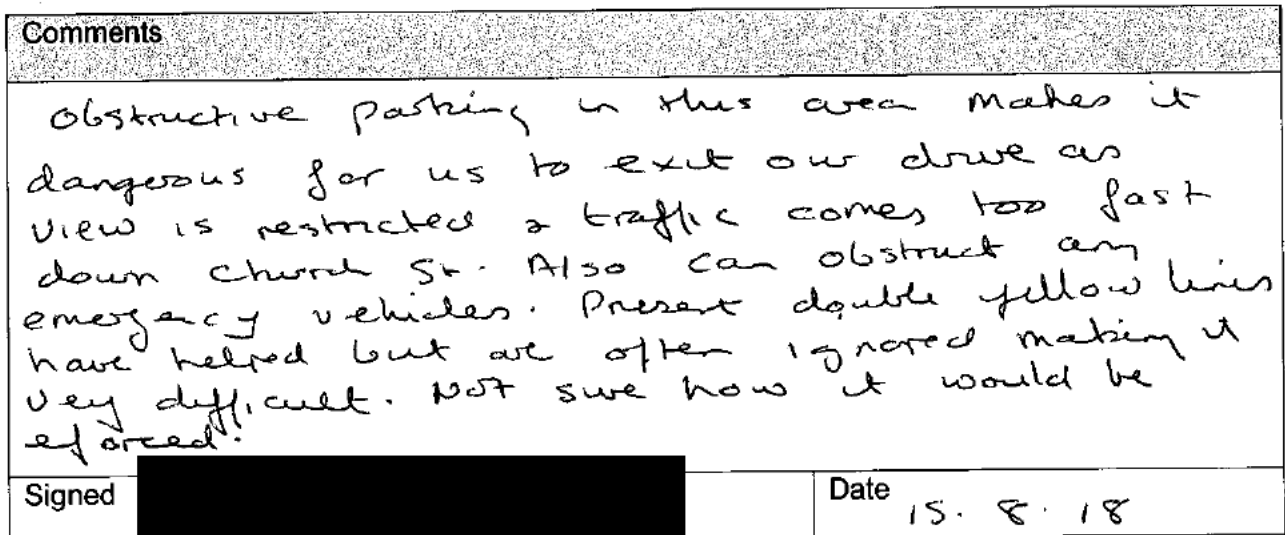 Comments
Obstructive parking in this area makes it
dangerous for us to exit our drive as
view is restricted & traffic comes too fast
down Church St. Also can obstruct any
emergency vehicles. Present double yellow lines
have helped but are often ignored making it
very difficult. Not sure how it would be
eforced.
Signed
Date 15. 8. 18